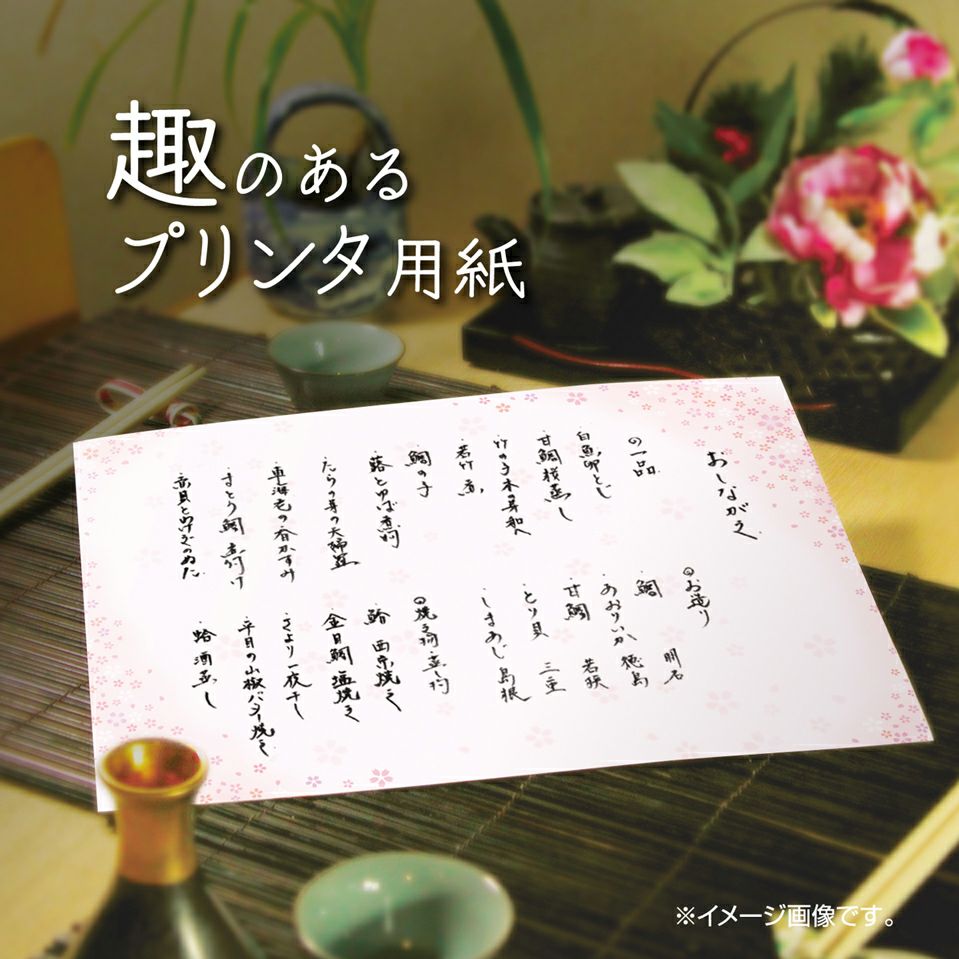 趣のある
プリンタ用紙
おしながき
の一品
白魚卵とじ
甘鯛桜蒸し
竹の子木の芽和へ
若竹煮
鯛の子
蕗とゆば煮物
たらの芽の天婦羅
車海老の春かすみ
さとう鯛 煮付け
赤貝とわけぎのぬた
のお造り
鯛 明石
あおりいか 徳島
甘鯛 若狭
とり貝 三重
しまあじ 島根
の焼き物・蒸し物
鰆 西京焼き
金目鯛 塩焼き
さより一夜干し
平目の山椒バター焼き
蛤酒蒸し
※イメージ画像です。